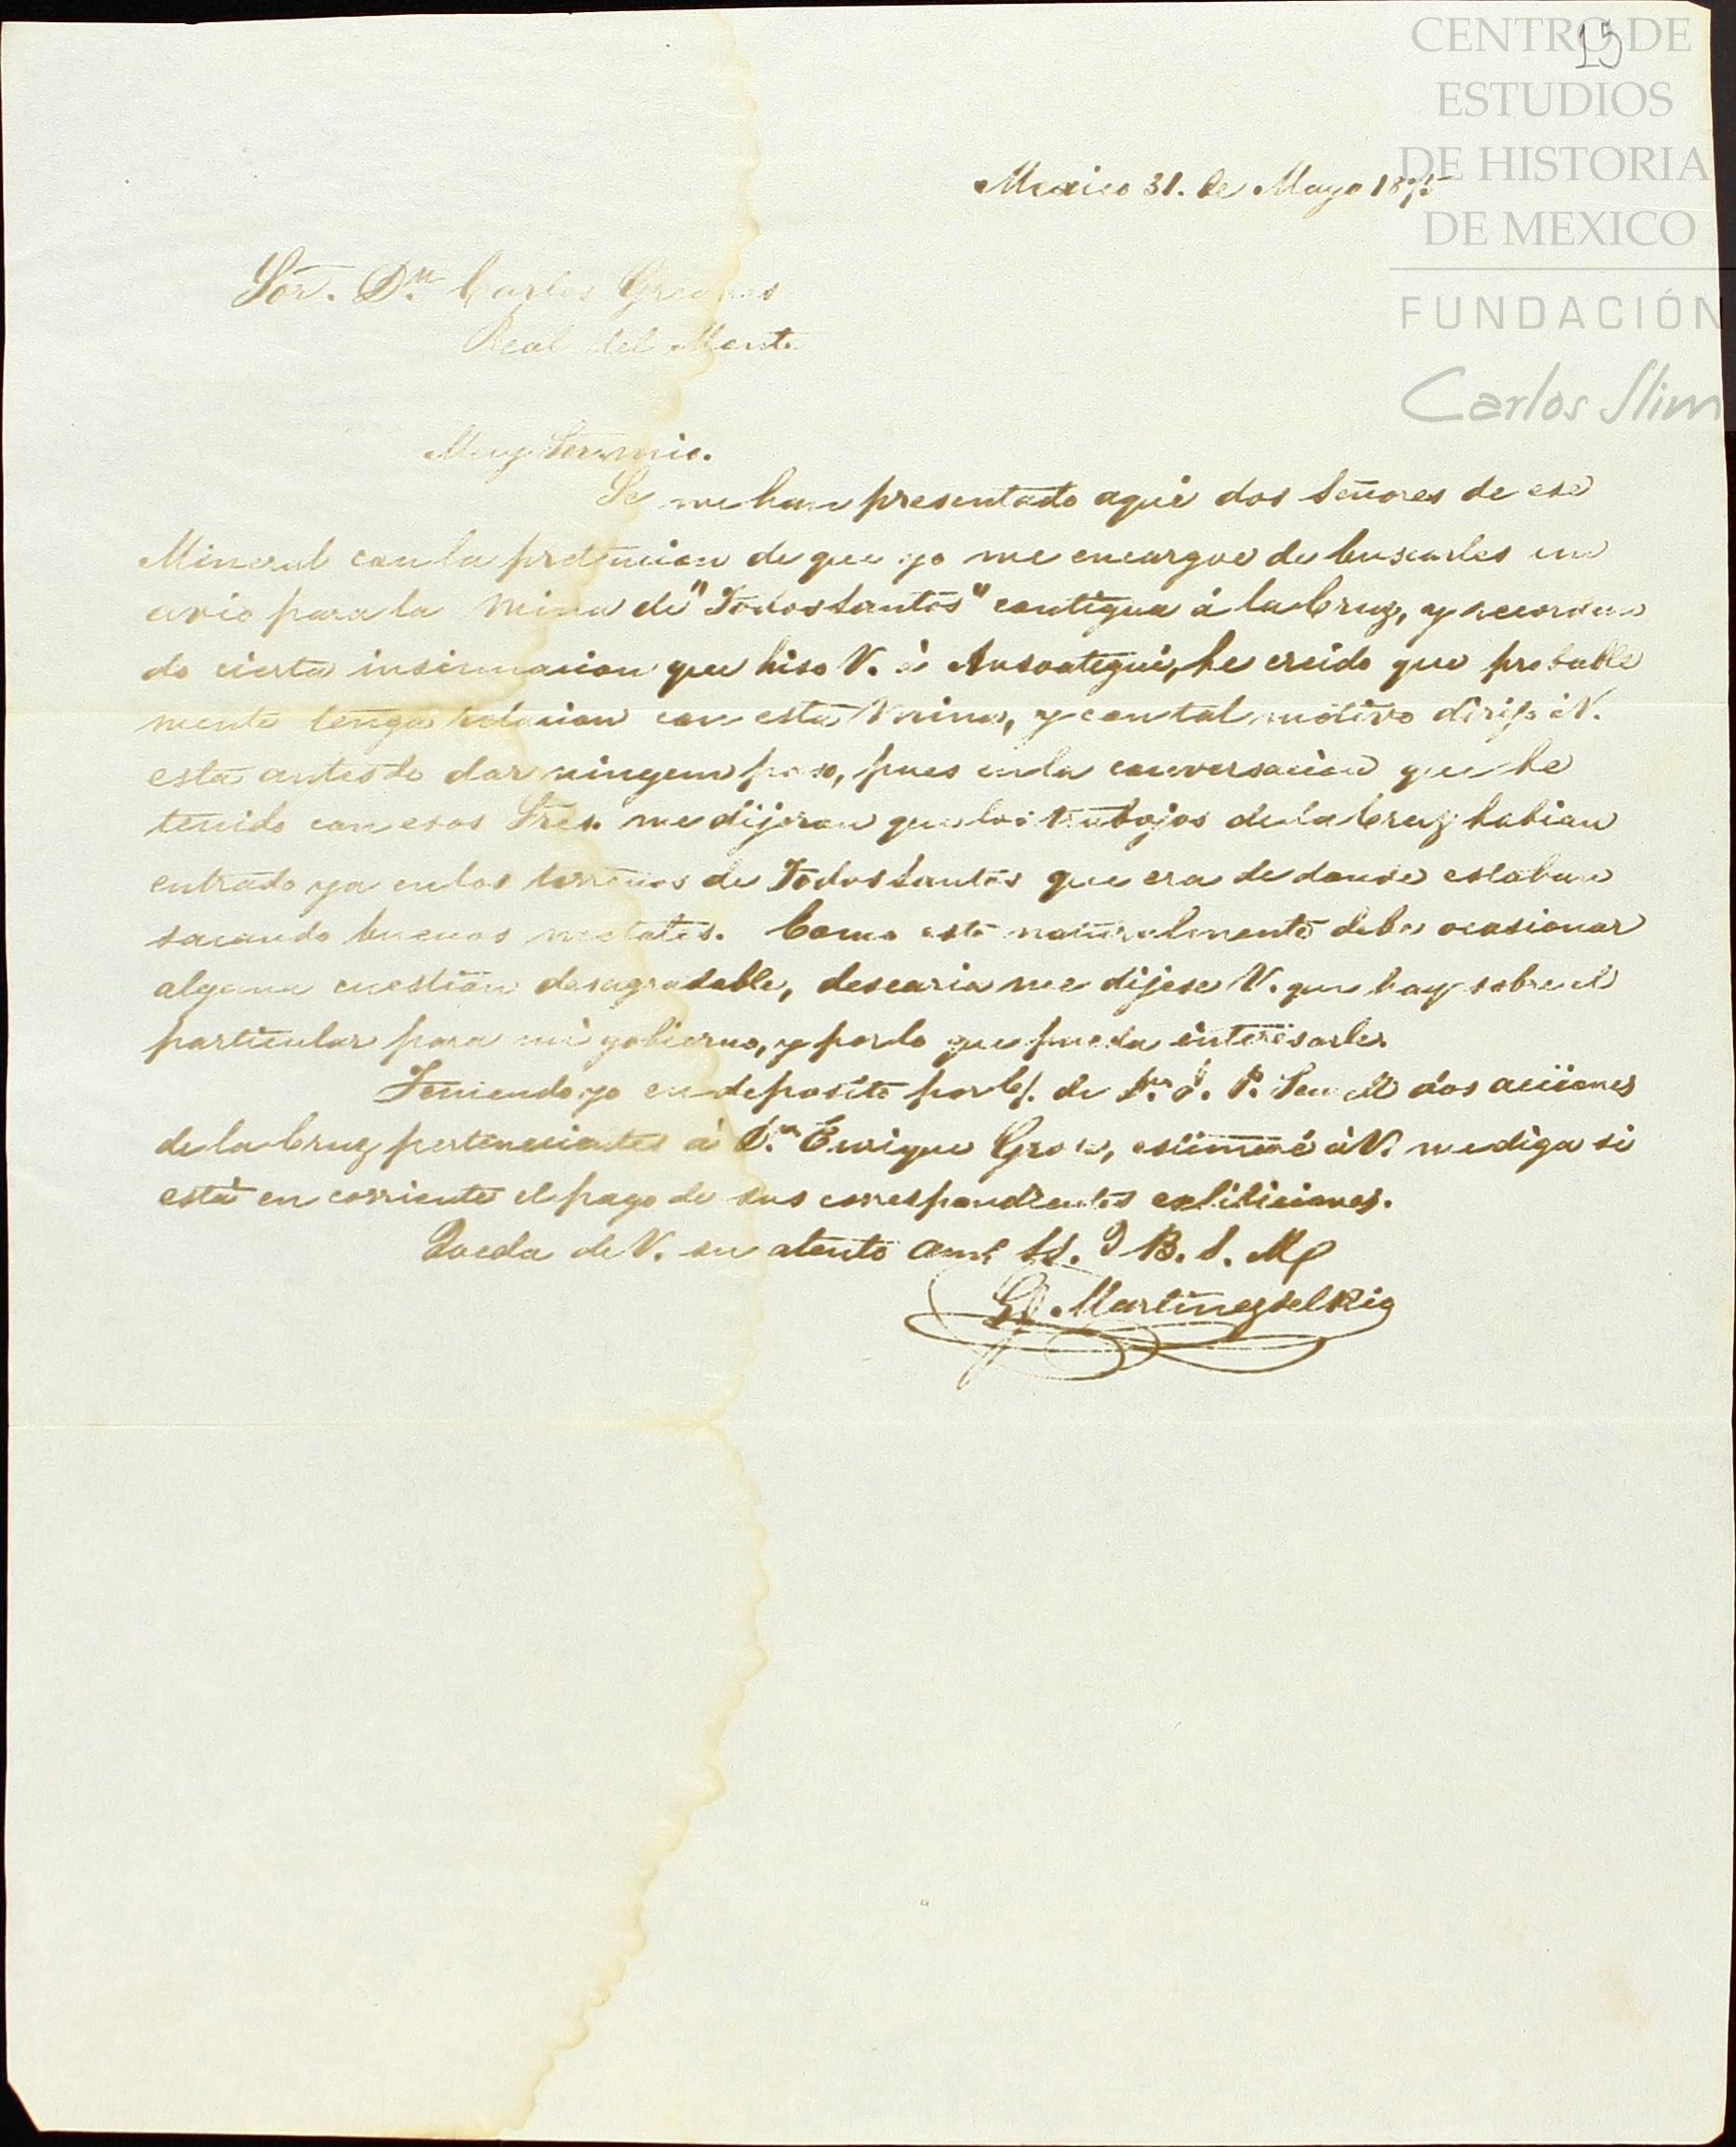 15
CENTRO DE
ESTUDIOS
DE HISTORIA
DE MEXICO
FUNDACIÓN
Carlos Slim
Mexico 31. de Mayo 1875
Sor. Dn. Carlos
Real del Monte
Muy Sor. mio.
Se me han presentado aqui dos Señores de ese
Mineral con la pretencion de que yo me encargue de buscarles un
avio para la Mina de "Todos Santos" contigua á la Cruz, y recordan
do cierta insinuacion que hiso V. á Ansoategui, he creido que probable
mente tenga relacion con esta Mina, y con tal motivo dirijo á V.
esta antes de dar ningun paso, pues en la conversacion que he
tenido con esos Sres. me dijeron que los trabajos de la Cruz habian
entrado ya en los terrenos de Todos Santos que era de donde estaban
sacando buenos metales. Como esto naturalmente debe ocasionar
alguna cuestion desagradable, desearia me dijese V. que hay sobre el
particular para mi gobierno, y por lo que pueda interesarle.
Teniendo yo en deposito por C/. de P. dos acciones
de la Cruz pertenecientes á Dn. Enrique estimaré á V. me diga si
está en corriente el pago de sus correspondientes exhibiciones.
Queda de V. su atento amo. SS. Q B. S. M
Martinez del Rio